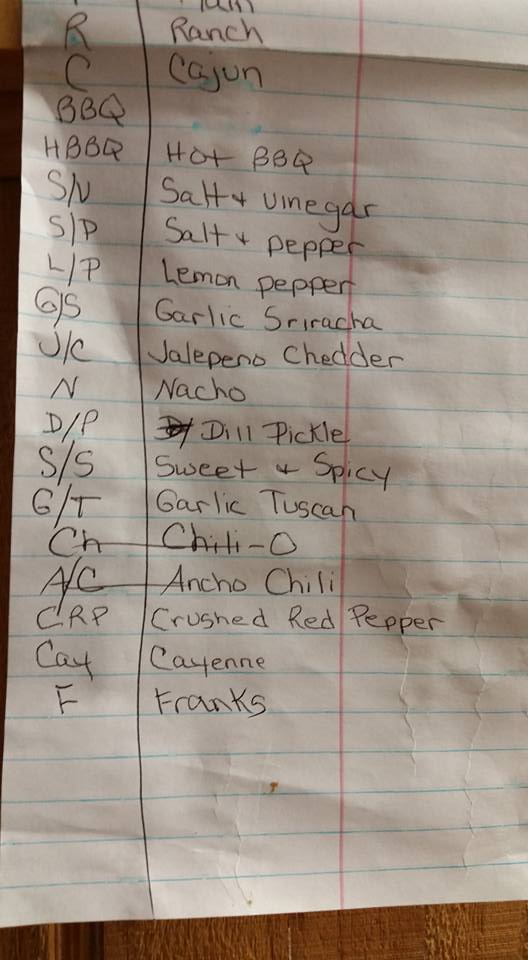 R Ranch
C Cajun
BBQ
HBBQ Hot BBQ
S/V Salt + Vinegar
S/P Salt + pepper
L/P Lemon pepper
G/S Garlic Sriracha
J/C Jalepeno Chedder
N Nacho
D/P Dill Pickle
S/S Sweet + Spicy
G/T Garlic Tuscan
Ch Chili-O
A/C Ancho Chili
CRP Crushed Red Pepper
Cay Cayenne
F Franks